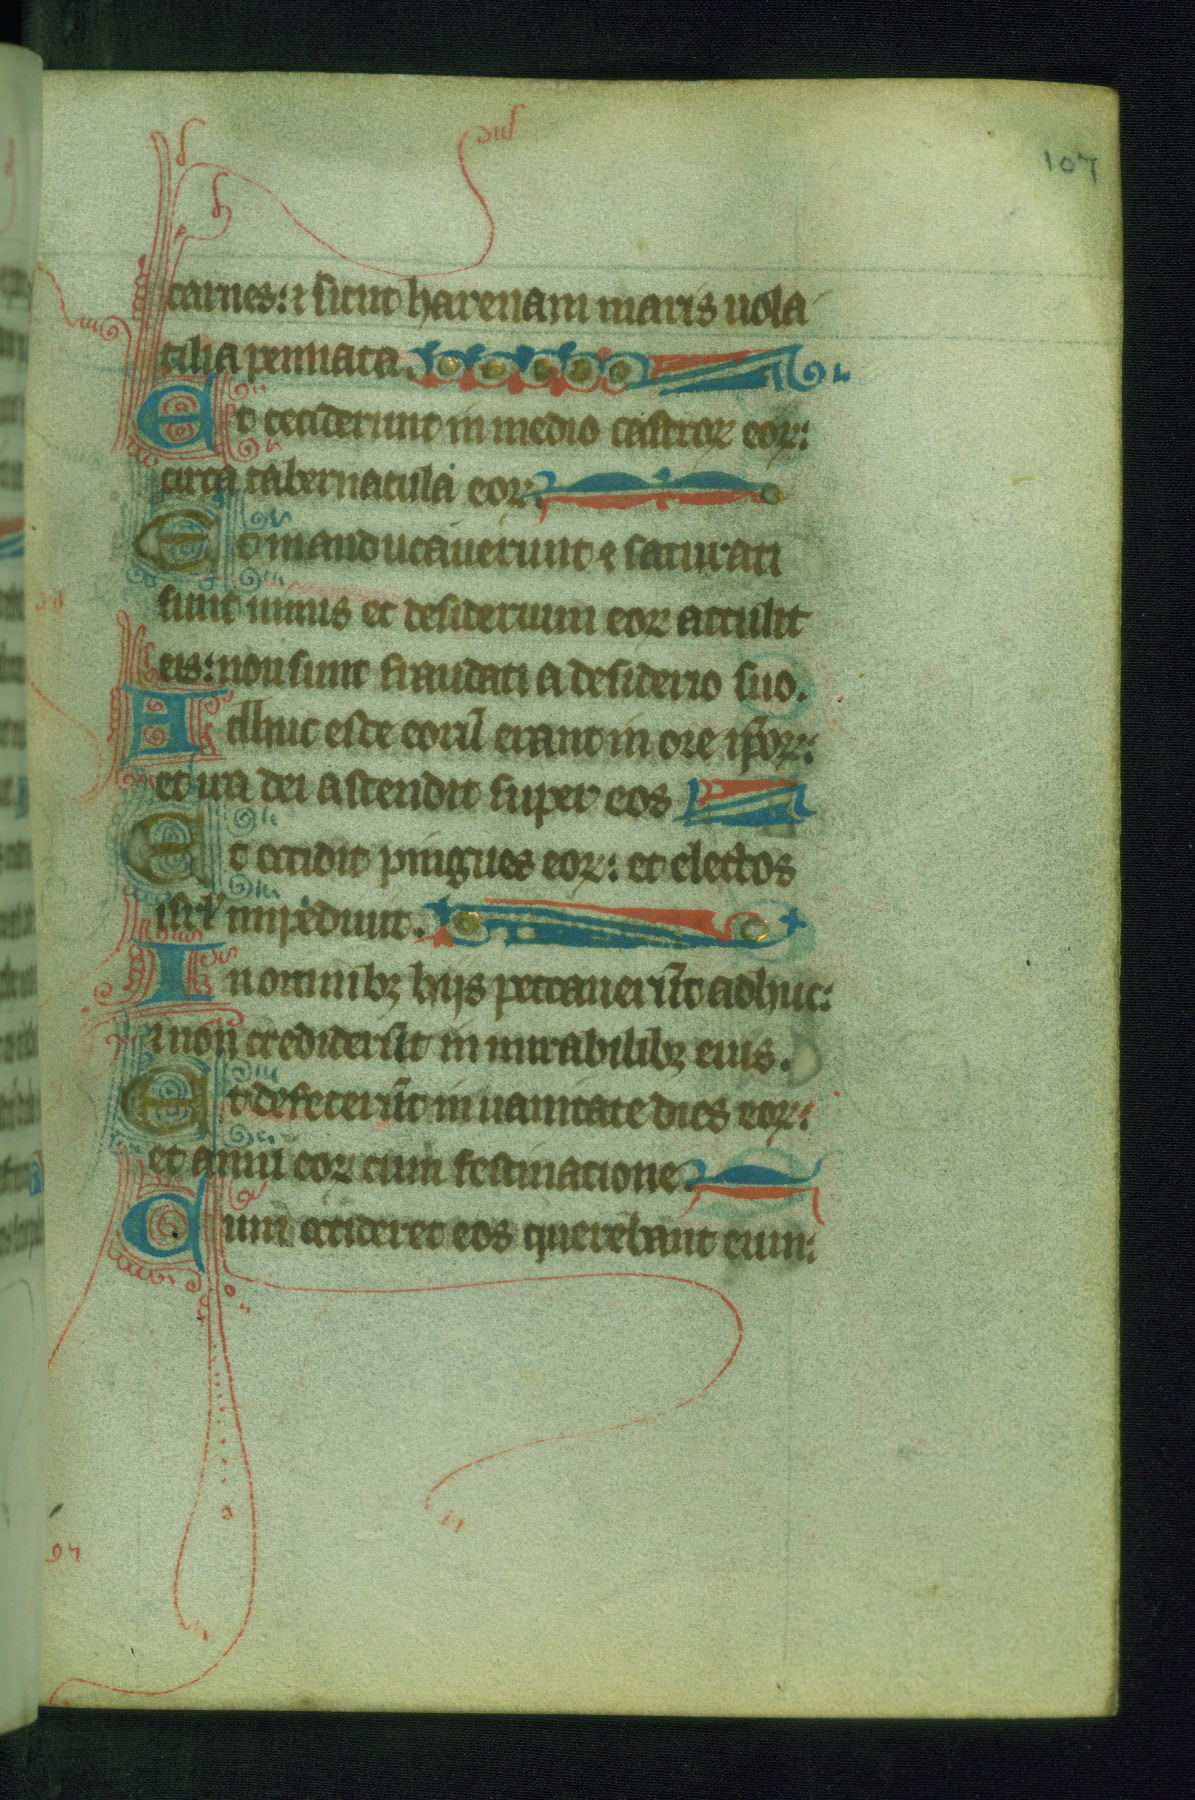 107
carnes: ⁊ sicut harenam maris uola
tilia pennata.
Et ceciderunt in medio castroꝝ eoꝝ:
circa tabernacula eoꝝ.
Et manducauerunt ⁊ saturati
sunt nimis et desiderium eoꝝ attulit
eis: non sunt fraudati a desiderio suo.
Adhuc esce eoꝝ erant in ore ip̄oꝝ:
et ira dei ascendit super eos
Et occidit pingues eoꝝ: et electos
isrl' impediuit.
In omnibꝫ hijs peccauer̄ūt adhuc:
⁊ non crediderūt in mirabilibꝫ eius.
Et defecerūt in uanitate dies eoꝝ:
et anni eoꝝ cum festinatione.
Cum occideret eos querebant eum: